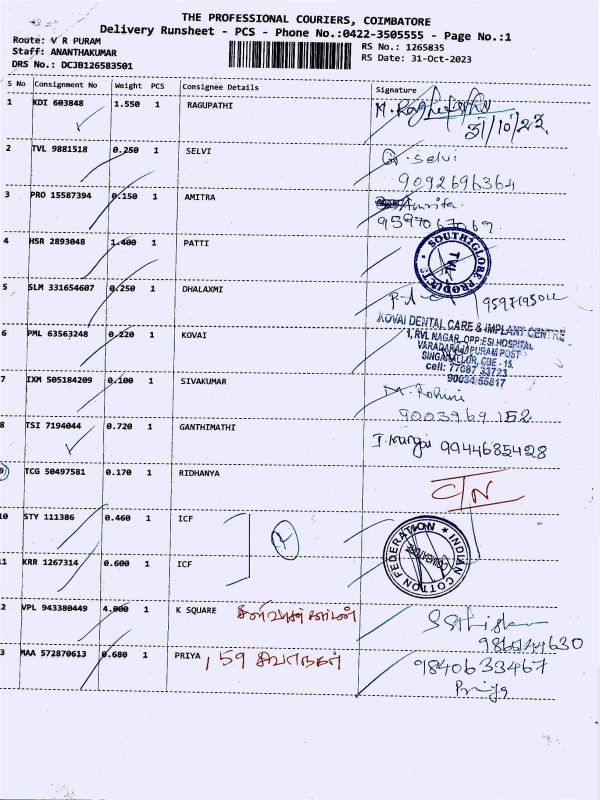 THE PROFESSIONAL COURIERS, COIMBATORE
Delivery Runsheet - PCS - Phone No.:0422-3505555 - Page No.:1
Route: V R PURAM
RS No.: 1265835
Staff: ANANTHAKUMAR
RS Date: 31-Oct-2023
DRS No.: DCJB126583501
S No Consignment No Weight PCS Consignee Details Signature
1 KDI 603848 1.550 1 RAGUPATHI
31/10/23
2 TVL 9881518 0.250 1 SELVI selvi
9092696364
3 PRO 15587394 0.150 1 AMITRA Amrita
9597067069
4 HSR 2893048 1.400 1 PATTI SOUTH2GLOBE PRODUCTS
5 SLM 331654607 0.250 1 DHALAXMI
KOVAI DENTAL CARE & IMPLANT CENTRE
6 PML 63563248 0.220 1 KOVAI 1, RVL NAGAR, OPP-ESI HOSPITAL
VARADARAJAPURAM POST
SINGANALLUR, CBE - 15.
cell: 77087 33723
90034 55817
7 IXM 505184209 0.100 1 SIVAKUMAR M. Rohini
9003969152
8 TSI 7194044 0.720 1 GANTHIMATHI 9944685428
9 TCG 50497581 0.170 1 RIDHANYA
10 STY 111386 0.460 1 ICF
INDIAN COTTON FEDERATION
COIMBATORE
11 KRR 1267314 0.600 1 ICF
12 VPL 943380449 4.000 1 K SQUARE
13 MAA 572870613 0.680 1 PRIYA , 59 9840633467
Priya